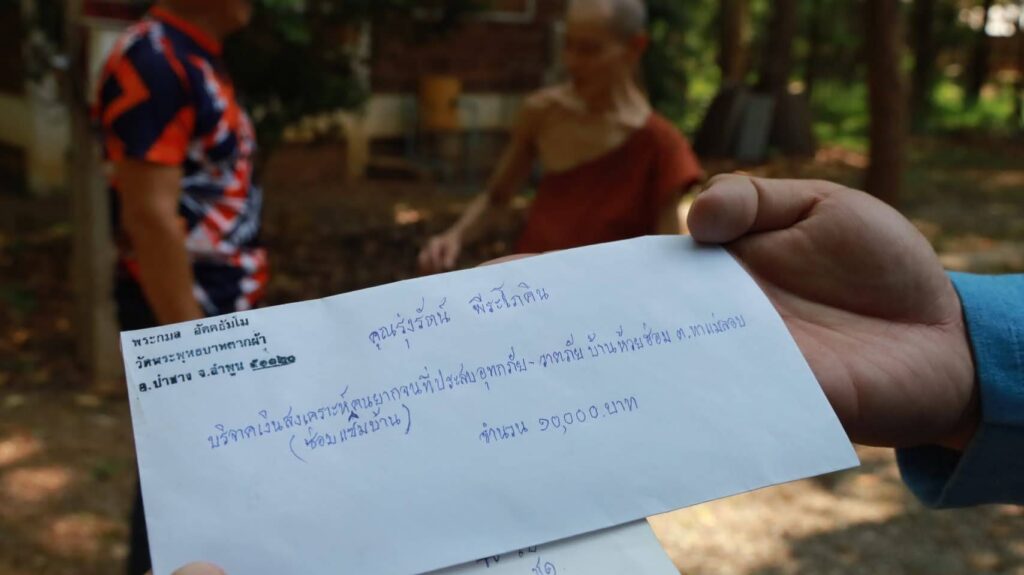 พระกมล อัคคธัมโม
วัดพระพุทธบาทตากผ้า
อ.ป่าซาง จ.ลำพูน ๕๑๑๒๐
คุณรุ่งรัตน์ พีระโภคิน
บริจาคเงินสงเคราะห์คนยากจนที่ประสบอุทกภัย-วาตภัย บ้านห้วยซ้อม ต.ทาแม่ลอบ
(ซ่อมแซมบ้าน)
จำนวน ๑๐,๐๐๐.บาท